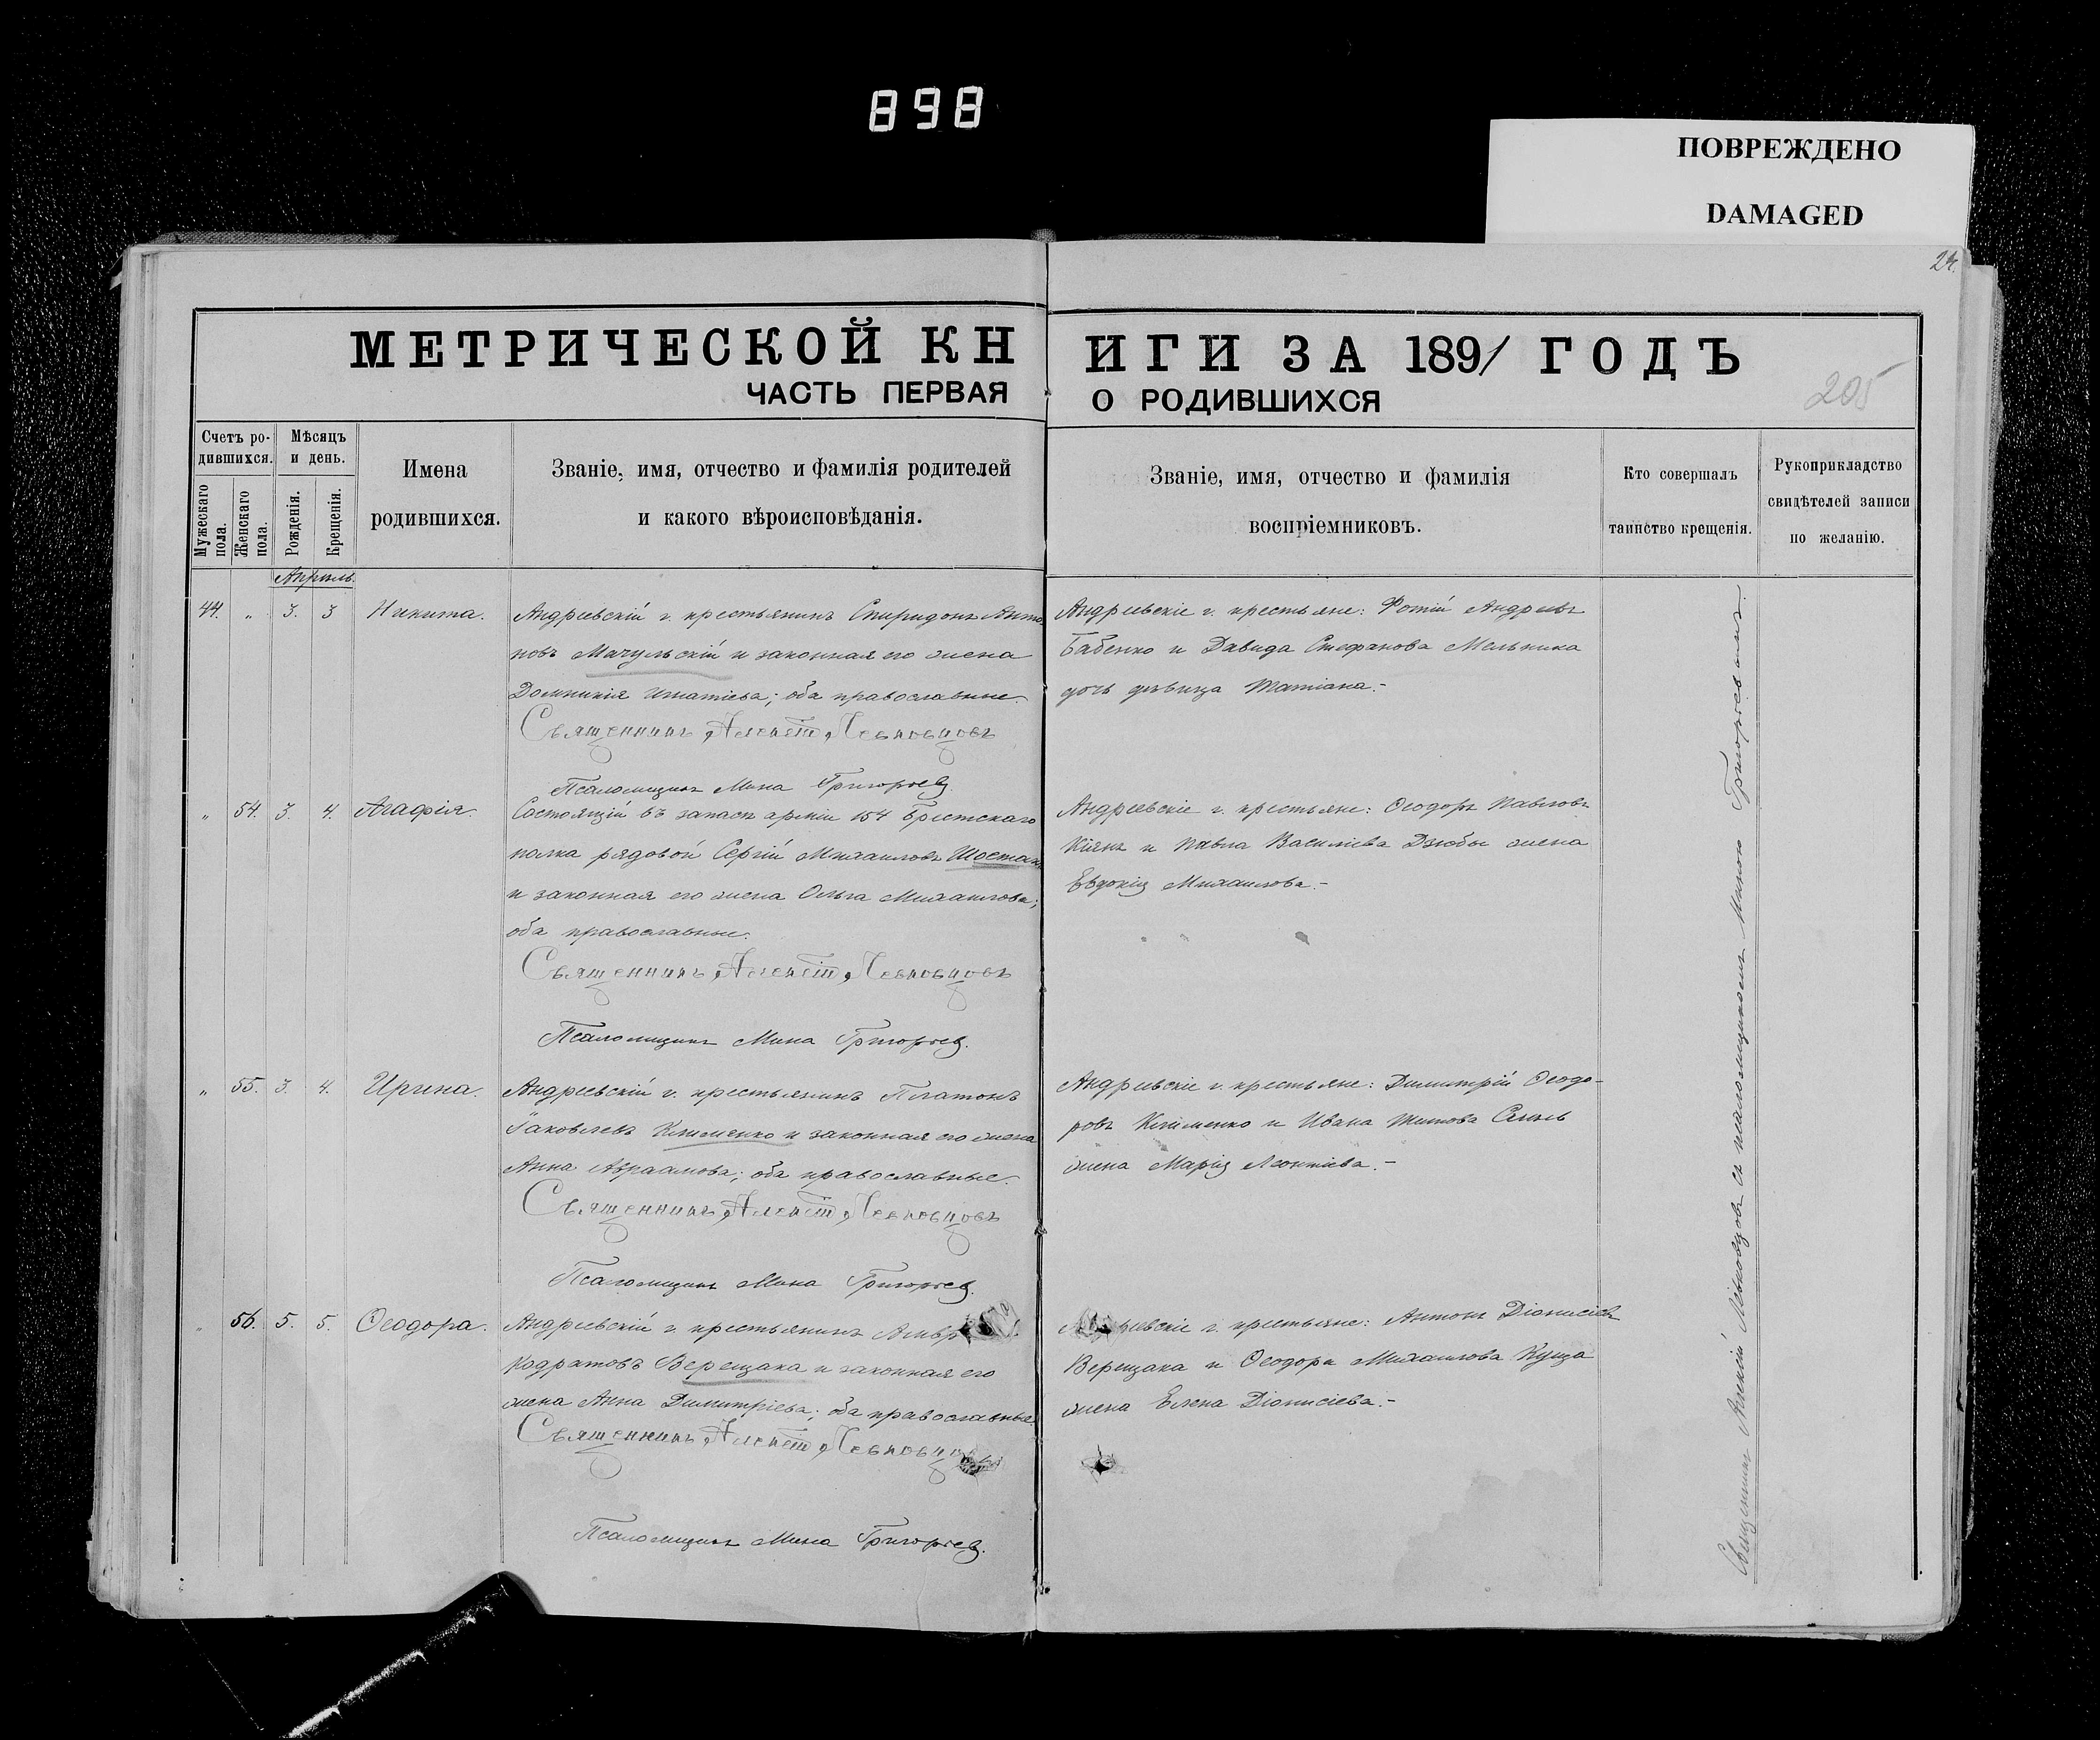 898
ПОВРЕЖДЕНО
DAMAGED
24.
МЕТРИЧЕСКОЙ КНИГИ ЗА 1891 ГОДЪ
205
ЧАСТЬ ПЕРВАЯ О РОДИВШИХСЯ
Счетъ родившихся.
Мужескаго пола.
Женскаго пола.
Мѣсяцъ и день.
Рожденія.
Крещенія.
Имена
родившихся.
Званіе, имя, отчество и фамилія родителей
и какого вѣроисповѣданія.
Званіе, имя, отчество и фамилія
воспріемниковъ.
Кто совершалъ
таинство крещенія.
Рукоприкладство
свидѣтелей записи
по желанію.
Апрель.
44. „ 3. 3 Никита.
Андреевскій г. крестьянинъ Спиридонъ Анто-
новъ Мачульскій и законная его жена
Домникія Игнатіева; оба православные.
Священникъ Алексій Левковцовъ
Псаломщикъ Мина Григорьев.
Андреевскіе г. крестьяне: Фотій Андреевъ
Бабенко и Давида Стефанова Мельника
дочь девица Татіана.-
„ 54. 3. 4. Агафія.
Состоящій въ запасѣ арміи 154 Брестскаго
полка рядовой Сергій Михаиловъ Шостак
и законная его жена Ольга Михаилова;
оба православные.
Священникъ Алексій Левковцовъ
Псаломщикъ Мина Григорьев.
Андреевскіе г. крестьяне: Ѳеодоръ Павловъ
Кіянъ и Павла Василіева Дзюбы жена
Евдокія Михаилова.-
„ 55. 3. 4. Ирина.
Андреевскій г. крестьянинъ Платонъ
Іаковлевъ Клименко и законная его жена
Анна Авраамова; оба православные.
Священникъ Алексій Левковцовъ
Псаломщикъ Мина Григорьев.
Андреевскіе г. крестьяне: Димитрій Ѳеодо-
ровъ Клименко и Ивана Титова
жена Марія Леонтіева.-
„ 56. 5. 5. Ѳеодора.
Андреевскій г. крестьянинъ Амвр
Кодратовъ Верещака и законная его
жена Анна Димитріева; оба православные.
Священникъ Алексій Левковцо
Псаломщикъ Мина Григорьев.
евскіе г. крестьяне: Антонъ Діонисіевъ
Верещака и Ѳеодора Михаилова Куща
жена Елена Діонисіева.-
Священникъ Алексій Левковцовъ съ псаломщикомъ Миною Григорьевымъ.